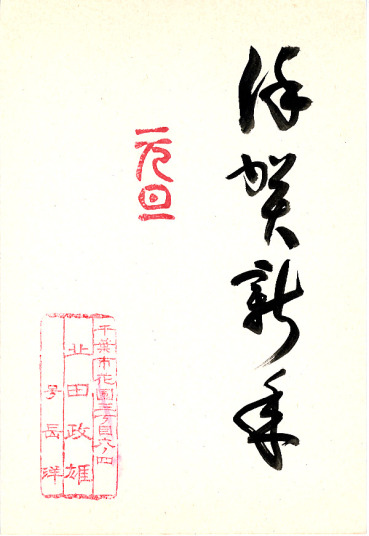 謹賀新年
元旦
千葉市花園三丁目六ノ四
北田政雄
号岳洋